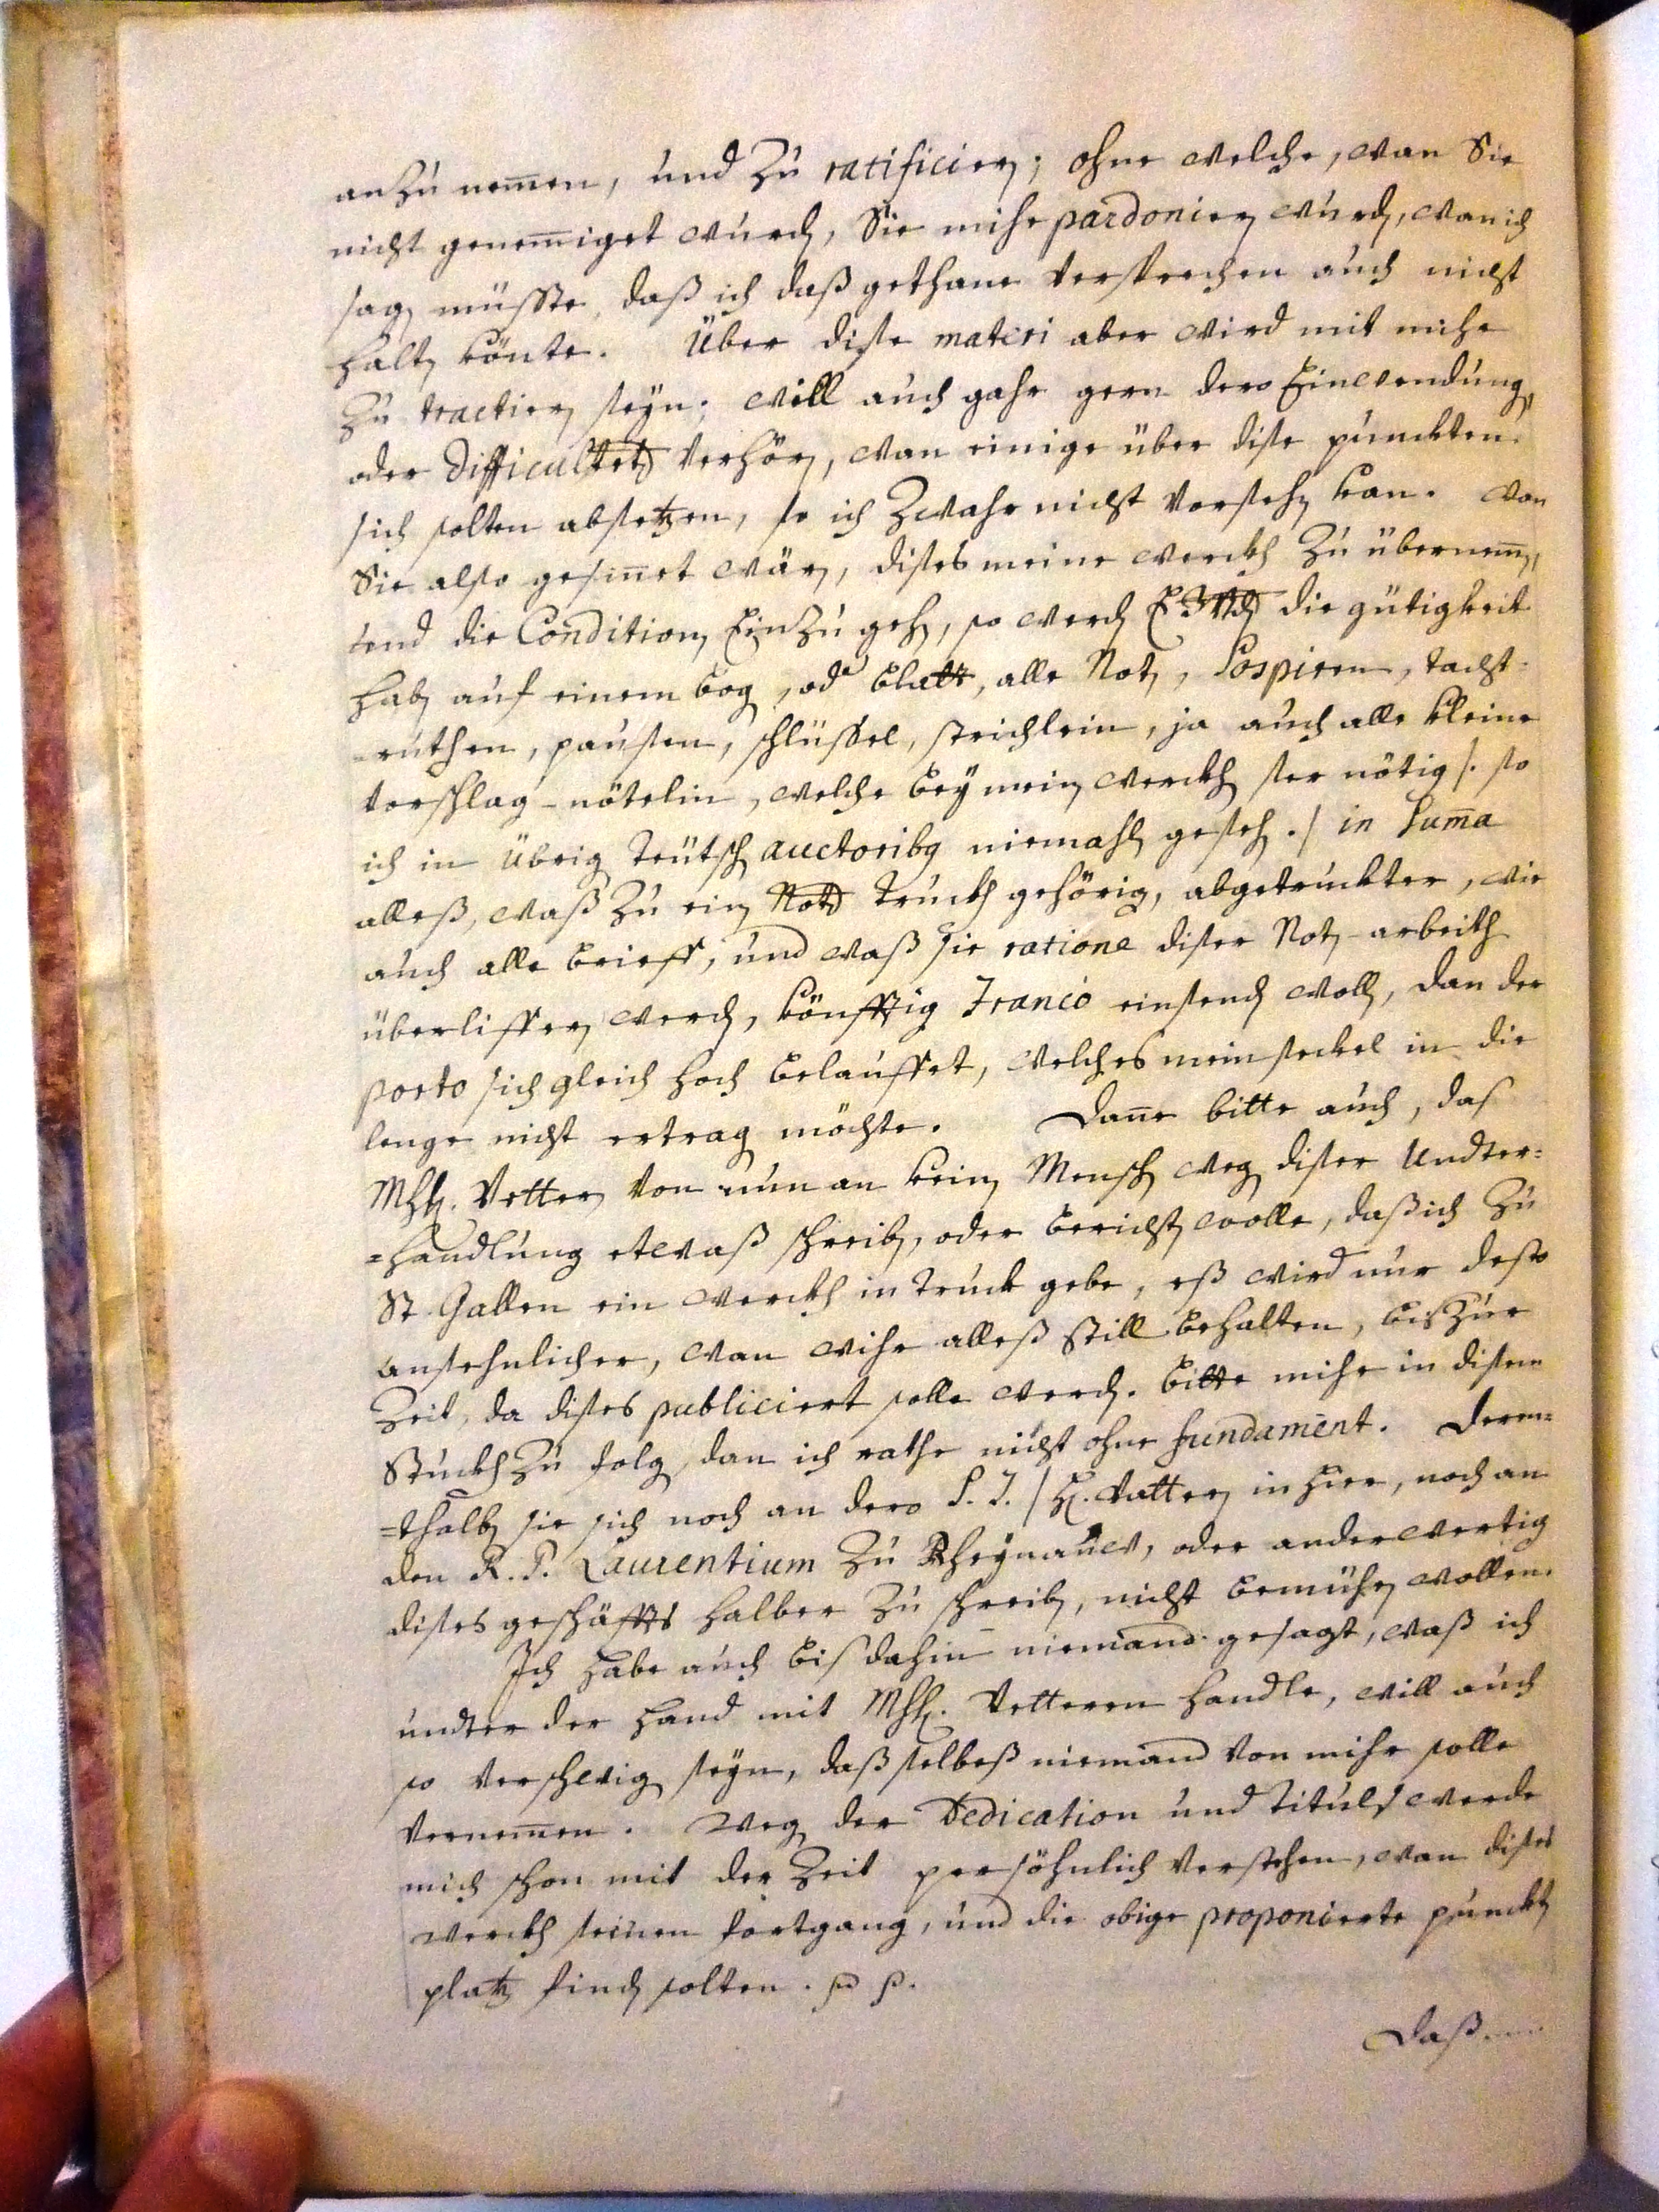 anzu nem̅en, und zu ratificiern; ohne welche, wan Sie
nicht genem̅iget wurdn, Sie mihr pardoniern wurdn, wan ich
sagn müsste, daß ich daß gethane Versprechen auch nicht
haltn könte. Über dise materi aber wird mit mihr
zu tractiern seyn; will auch gahr gern dero Einwendungn,
oder Difficultetn verhörn, wan einige über dise punckten
sich solten absetzen, so ich zwahr nicht vorsehn kan. Wan
Sie also gesin̅et wärn, dises meine werckh zu übernem̅n,
und die Conditionn Einzu gehn, so werdn die gütigkeit
habn auf einem bogn, odr blatt, alle Notn, Sospiren, tact-
-ruthen, pausen, schlüssel, strichlein, ja auch alle kleine
vorschlag-nötelin, welche bey mein werckh ser nötig /: so
ich in übrign Teütschn auctoribq niemahln gesehn ./ in Sum̅a
alleß, waß zu ein Notn Truckh gehörig, abgetruckter, wie
auch alle brieff, und waß sie ratione diser Notn-arbeith
überliffern werdn, könfftig Franco einsendn wolln, dan der
porto sich gleich hoch belauffet, welches mein seckel in die
lenge nicht ertragn möchte. Dan̅e bitte auch, das
Mhh. Vettern von nun an kein Menschn wegn diser Undter=
=handlung etwaß schreibn, oder berichtn wolle, daß ich zu
St. Gallen ein werckh in truck gebe, eß wird nur desto
ansehnlicher, wan wihr alleß still behalten, bis zur
Zeit, da dises publiciert solle werdn. bitte mihr in disem
Stuckh zu folgn, dan ich rathe nicht ohne fundament. Derent=
=halbn sie sich noch an dero S. J. / H. Vattern in hier, noch an
den R. P. Laurentium zu Rheynauw, oder anderwertig
dises geschäffts halber zu schreibn, nicht bemühn wollen.
Ich habe auch bis dahin niemand gesagt, waß ich
undter der hand mit Mhh. Vetteren handle, will auch
so verschwign seyn, daß selbeß niemand von mihr solle
vernem̅en. Wegn der Dedication und Tituls werde
mich schon mit der Zeit persöhnlich verstehen, wan dises
werckh seinen fortgang, und die obige proponierte punckn
platz findn solten. p p.
Daß